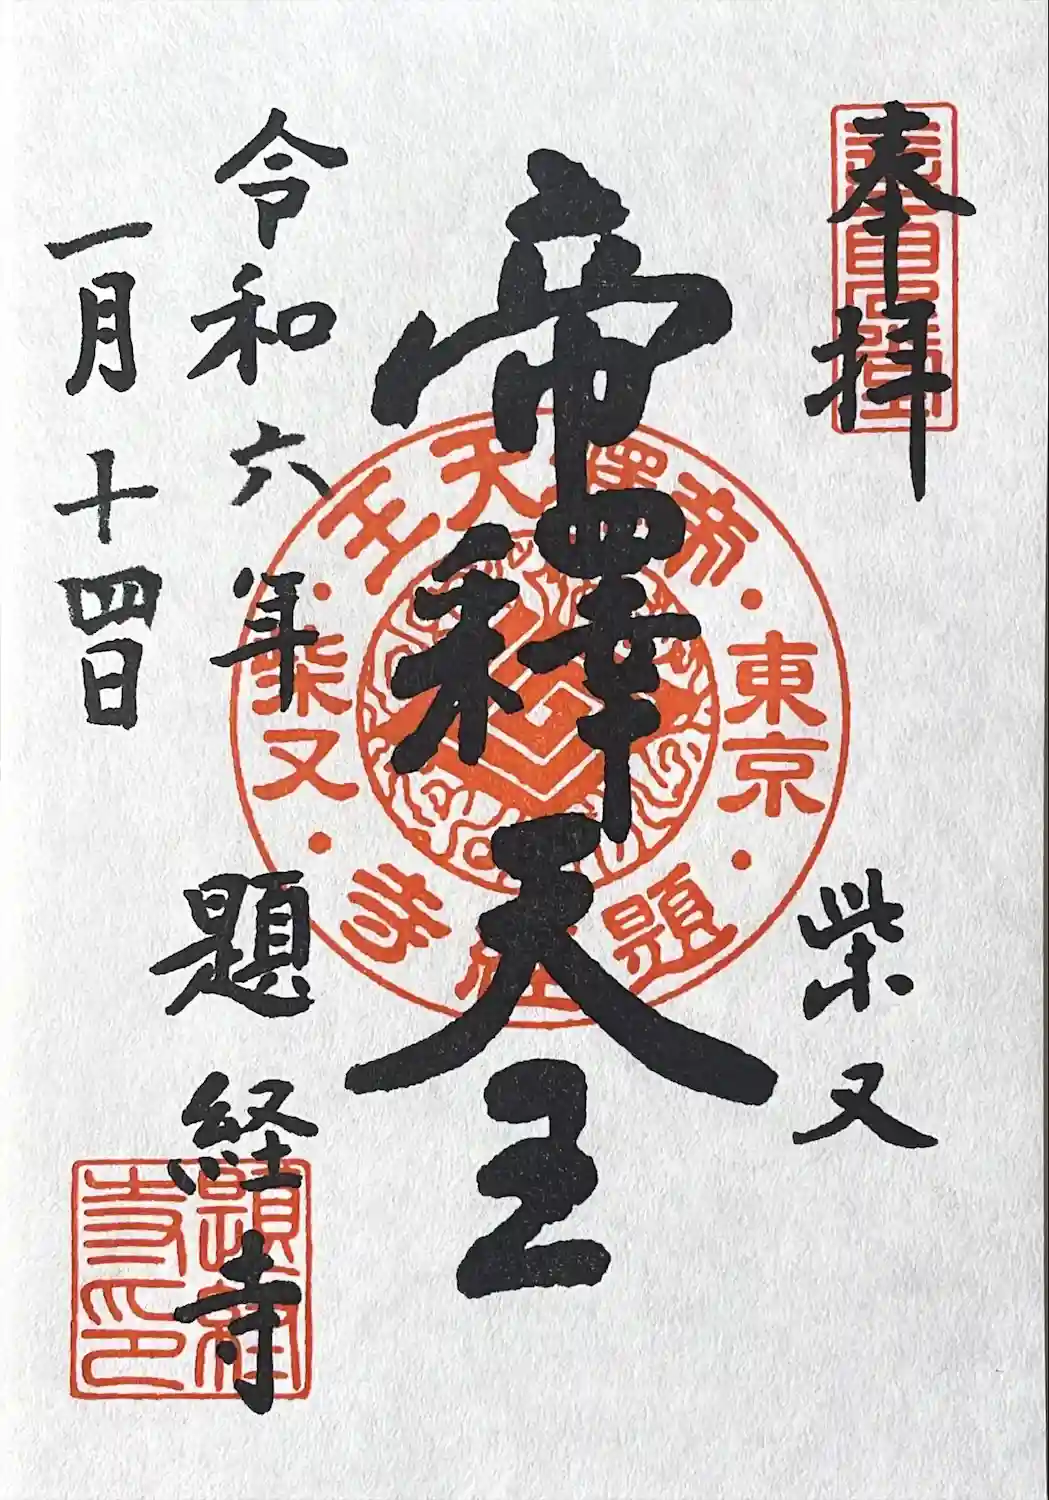 奉拝
柴又
帝釋天王
令和六年
一月十四日
題経寺
東京
帝釋天王
柴又
題経寺
題経寺印